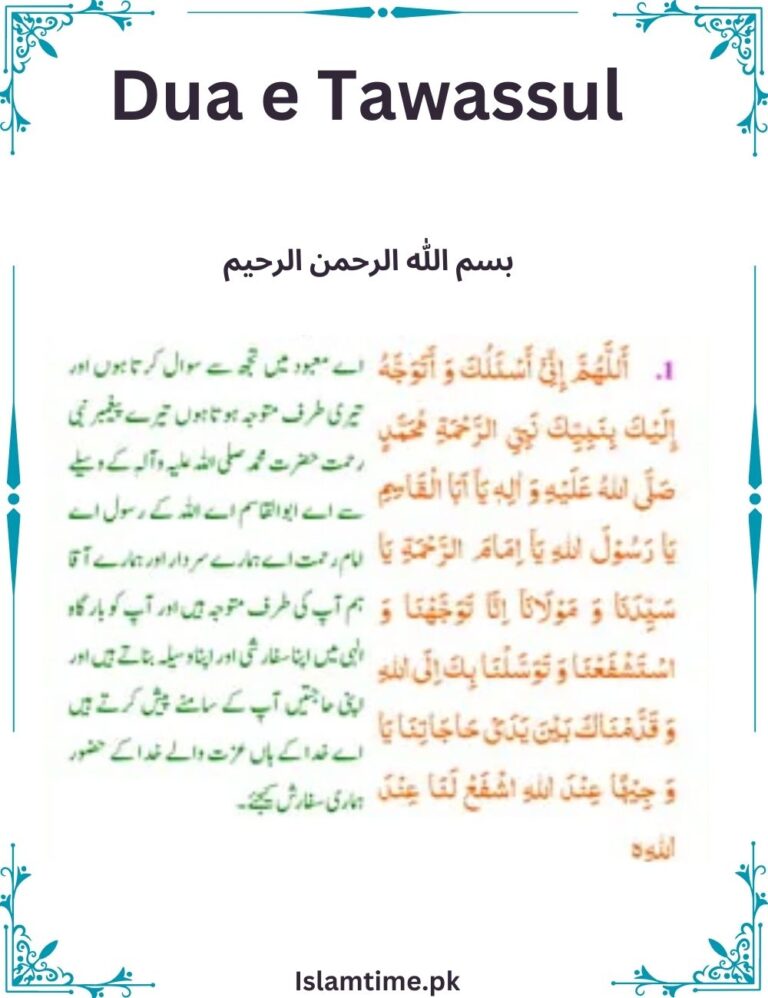 Dua e Tawassul
بسم الله الرحمن الرحيم
1. أَللَّهُمَّ إِنِّيْ أَسْئَلُكَ وَ أَتَوَجَّهُ
إِلَيْكَ بِنَبِيِّكَ نَبِيِّ الرَّحْمَةِ مُحَمَّدٍ
صَلَّى اللهُ عَلَيْهِ وَ اٰلِهٖ يَآ اَبَا الْقَاسِمِ
يَا رَسُوْلَ اللهِ يَآ اِمَامَ الرَّحْمَةِ يَا
سَيِّدَنَا وَ مَوْلَانَا اِنَّا تَوَجَّهْنَا وَ
اسْتَشْفَعْنَا وَ تَوَسَّلْنَا بِكَ اِلَى اللهِ
وَ قَدَّمْنَاكَ بَيْنَ يَدَىْ حَاجَاتِنَا يَا
وَ جِيْهًا عِنْدَ اللهِ اشْفَعْ لَنَا عِنْدَ
اللهِ٥
اے معبود میں تجھ سے سوال کرتا ہوں اور
تیری طرف متوجہ ہوتا ہوں تیرے پیغمبر نبی
رحمت حضرت محمد صلی اللہ علیہ وآلہ کے وسیلے
سے اے ابوالقاسم اے اللہ کے رسول اے
امام رحمت اے ہمارے سردار اور ہمارے آقا
ہم آپ کی طرف متوجہ ہیں اور آپ کو بارگاہ
الٰہی میں اپنا سفارشی اور اپنا وسیلہ بناتے ہیں اور
اپنی حاجتیں آپ کے سامنے پیش کرتے ہیں
اے خدا کے ہاں عزت والے خدا کے حضور
ہماری سفارش کیجئے۔
Islamtime.pk